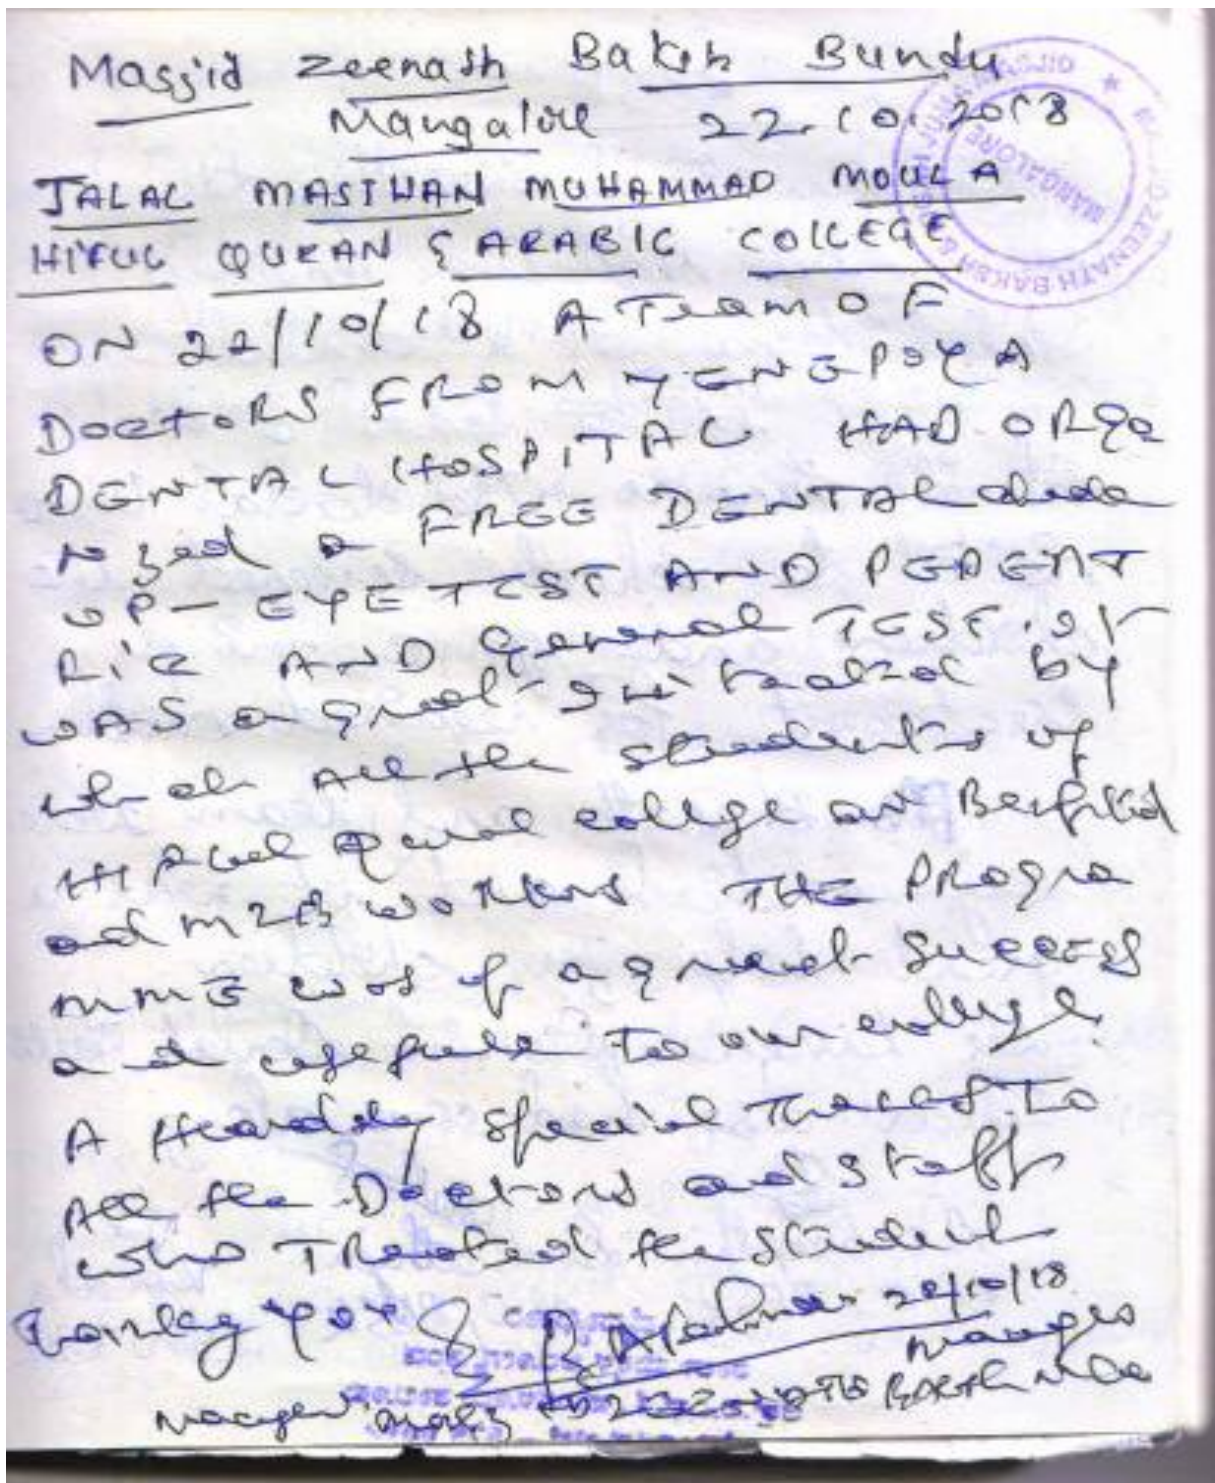 Masjid Zeenath Baksh Bundu
Mangalore 22.10.2018
JALAL MASTHAN MUHAMMAD MOULA
HIFUL QURAN & ARABIC COLLEGE
ON 22/10/18 A Team OF
DOCTORS FROM YENEPOYA
DENTAL HOSPITAL HAD ORGa
Nized a FREE DENTAL check
UP - EYE TEST AND PEDEAT
RIC AND General TEST. It
WAS a great initiated by
which All the students of
Hiful Quran college are Benfited
and MZB workers THE Progra
mme was of a great success
and usefull to our college.
A Heardly special Thanks To
All the Doctors and staff
who Treated the student
Thanking you 22/10/18
Manager